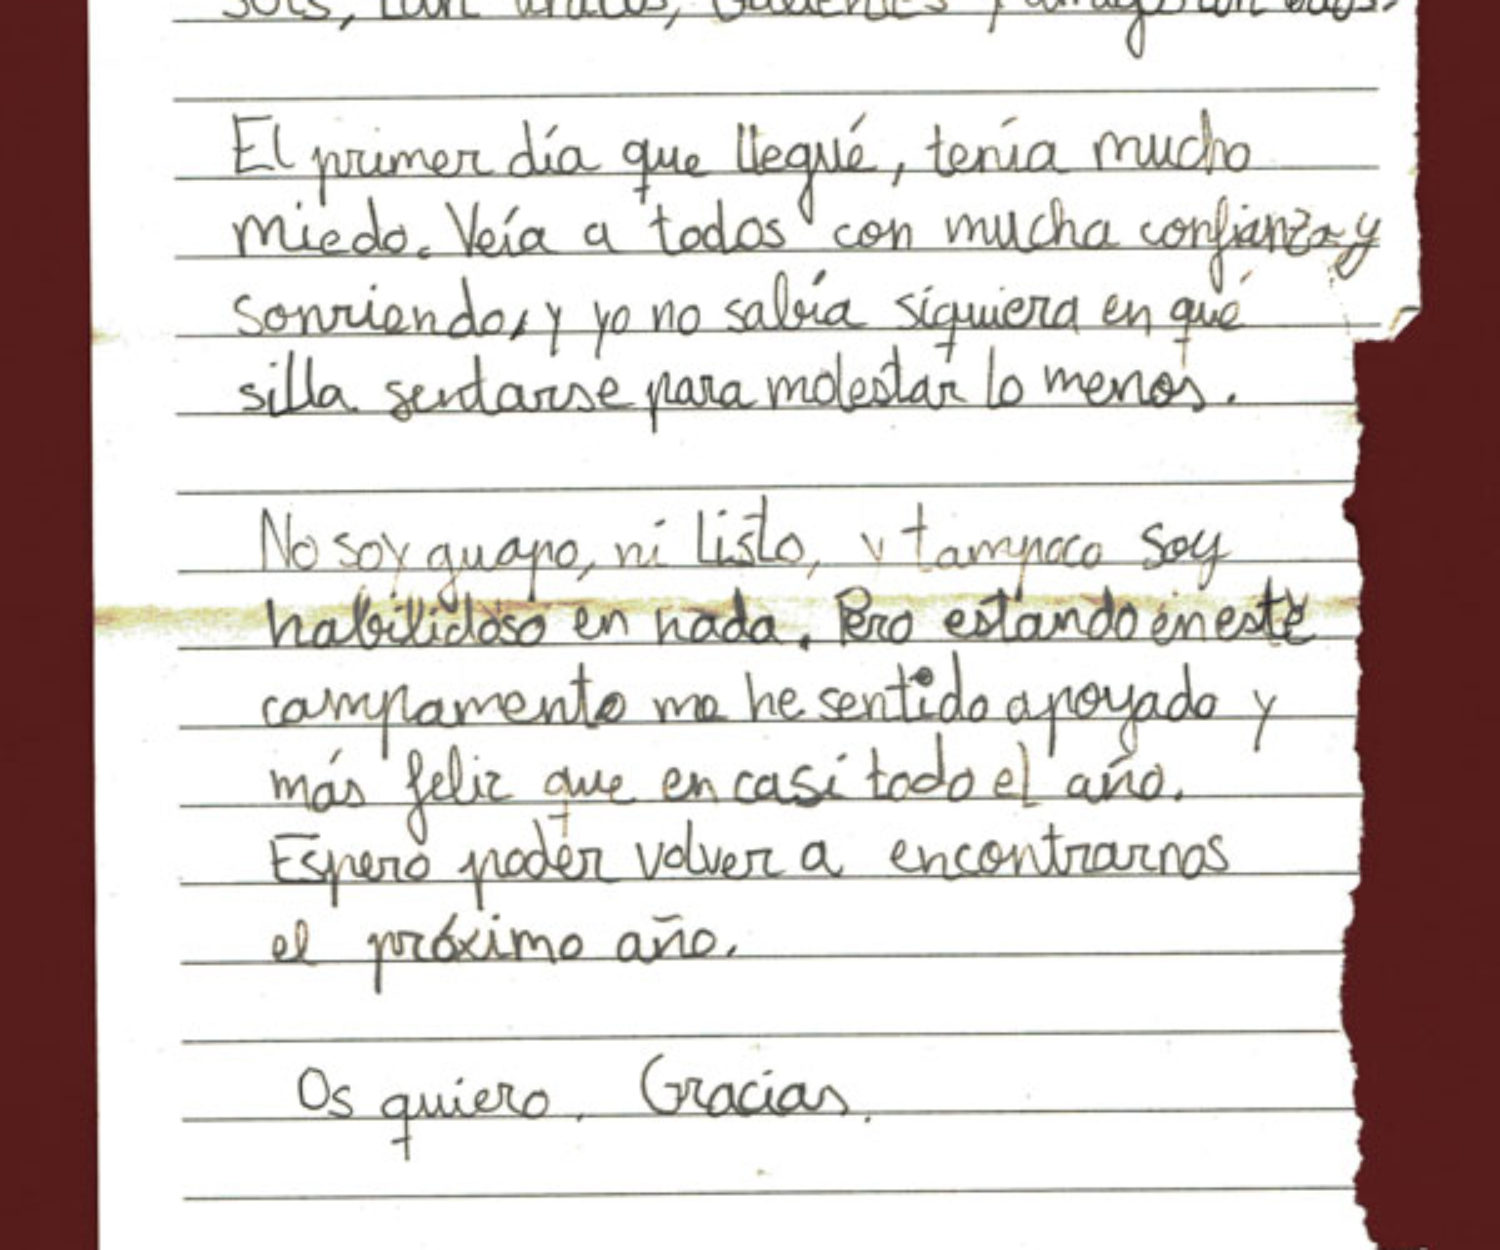 El primer día que llegué, tenía mucho
miedo. Veía a todos con mucha confianza y
sonriendo, y yo no sabía siquiera en qué
silla sentarse para molestar lo menos.
No soy guapo, ni listo, y tampoco soy
habilidoso en nada. Pero estando en este
campamento me he sentido apoyado y
más feliz que en casi todo el año.
Espero poder volver a encontrarnos
el próximo año.
Os quiero. Gracias.